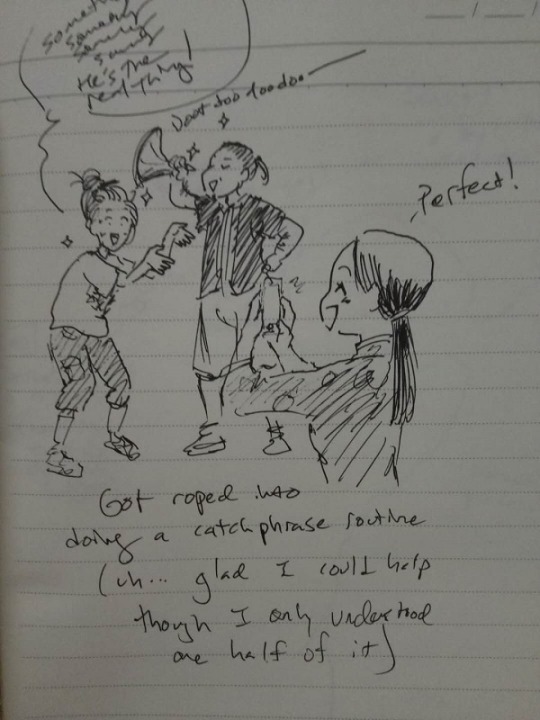 something
someday
something
He's the
real thing!
Doot doo doo doo
Perfect!
Got roped into
doing a catchphrase routine
(uh... glad I could help
though I only understood
one half of it)